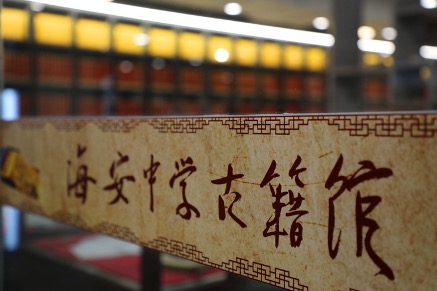 海安中学古籍馆